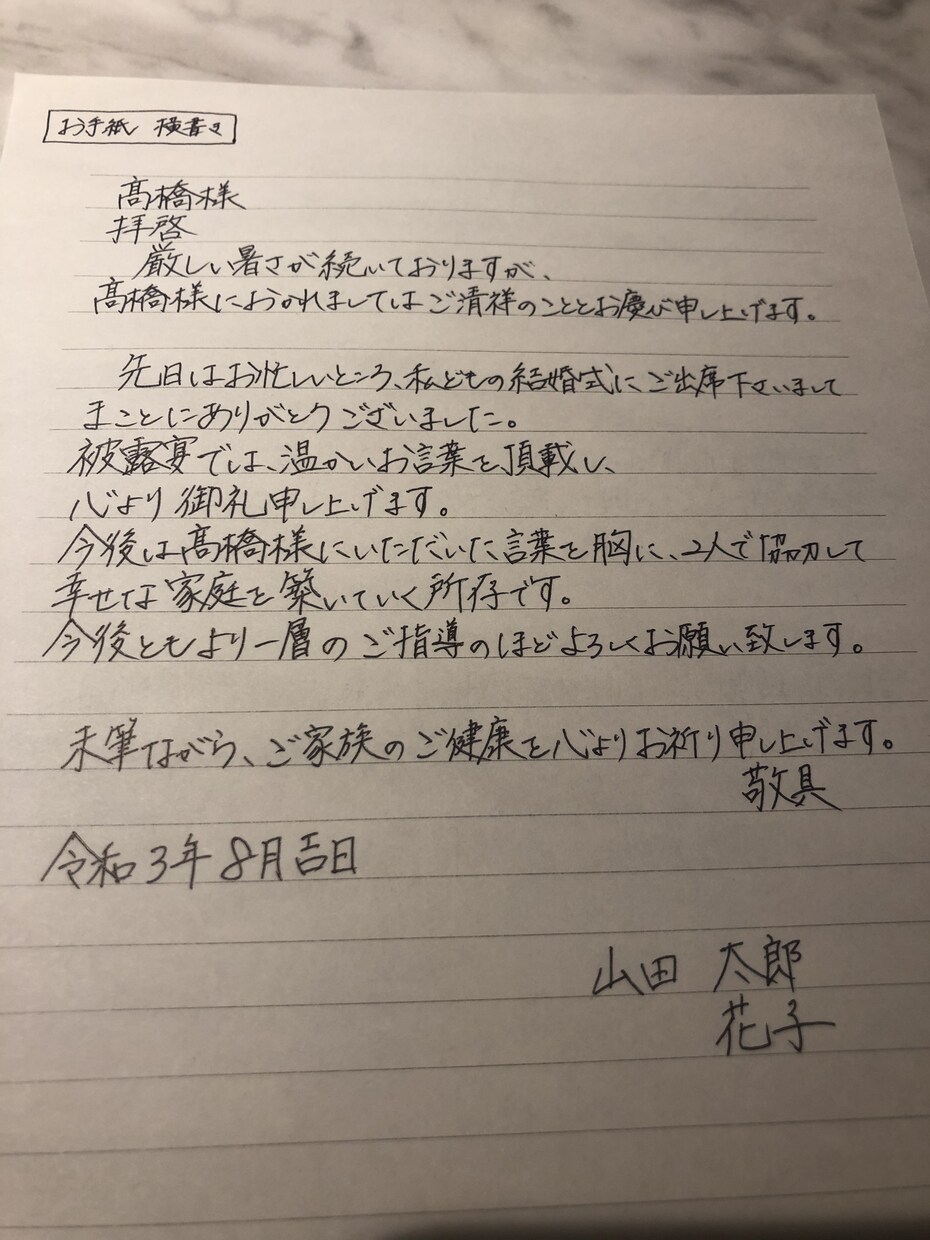 お手紙 横書き
髙橋様
拝啓
厳しい暑さが続いておりますが、
髙橋様におかれましてはご清祥のこととお慶び申し上げます。
先日はお忙しいところ、私どもの結婚式にご出席下さいまして
まことにありがとうございました。
被露宴では、温かいお言葉を頂載し、
心より御礼申し上げます。
今後は髙橋様にいただいた言葉を胸に、2人で協力して
幸せな家庭を築いていく所存です。
今後ともより一層のご指導のほどよろしくお願い致します。
末筆ながら、ご家族のご健康を心よりお祈り申し上げます。
敬具
令和3年8月吉日
山田 太郎
花子